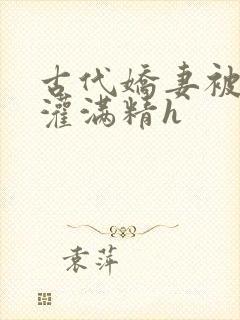 古代嬌妻被
灌满精h
袁萍